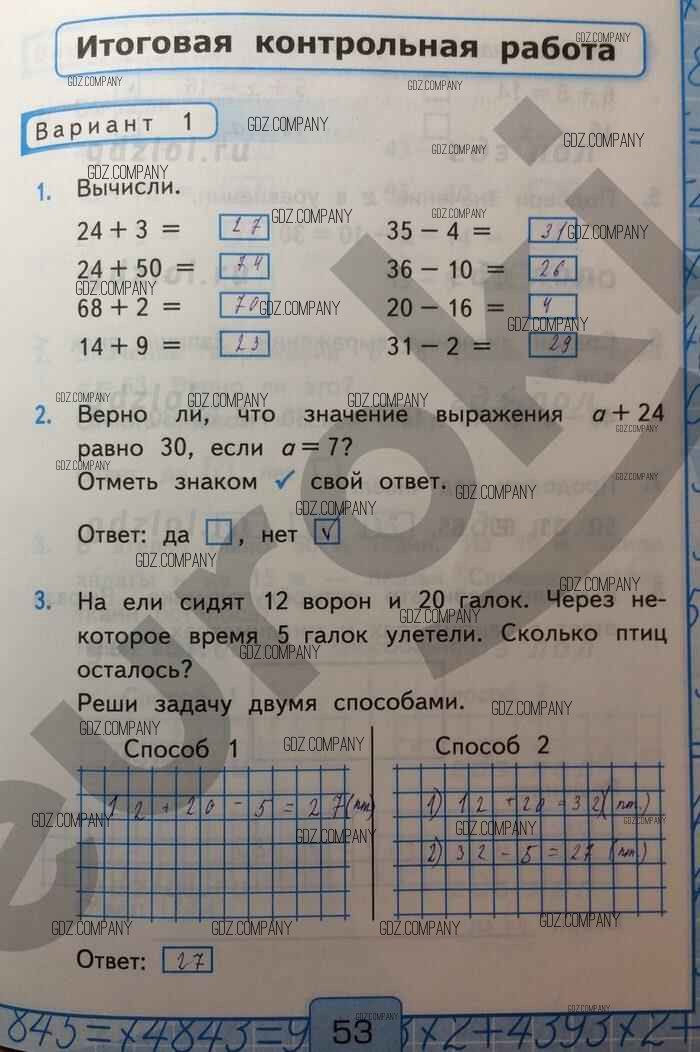 Итоговая контрольная работа
Вариант 1
1. Вычисли.
24 + 3 = 27 35 − 4 = 31
24 + 50 = 74 36 − 10 = 26
68 + 2 = 70 20 − 16 = 4
14 + 9 = 23 31 − 2 = 29
2. Верно ли, что значение выражения a + 24
равно 30, если a = 7?
Отметь знаком ✓ свой ответ.
Ответ: да , нет ✓
3. На ели сидят 12 ворон и 20 галок. Через не-
которое время 5 галок улетели. Сколько птиц
осталось?
Реши задачу двумя способами.
Способ 1 Способ 2
12 + 20 − 5 = 27 (пт.) 1) 12 + 20 = 32 (пт.)
2) 32 − 5 = 27 (пт.)
Ответ: 27
53
GDZ.COMPANY
euroki